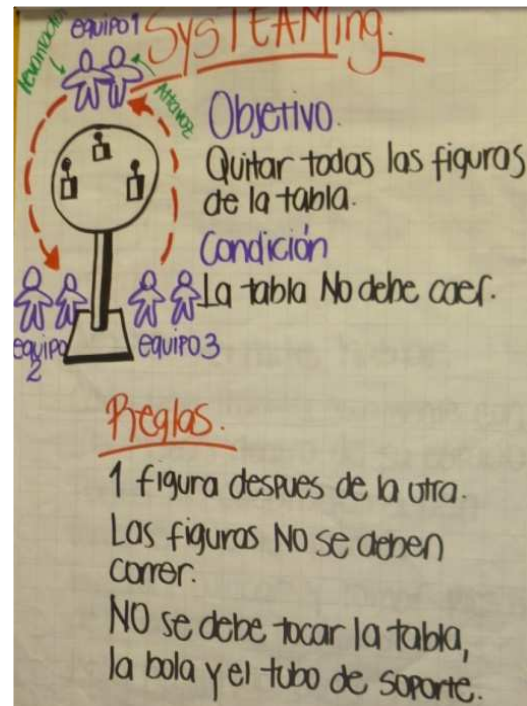 SysTEAMing.
equipo 1
Altavoz
Objetivo.
Quitar todas las figuras
de la tabla.
Condición
La tabla No debe caer.
equipo
2
equipo 3
Reglas.
1 figura despues de la otra.
Las figuras No se deben
correr.
NO se debe tocar la tabla,
la bola y el tubo de soporte.